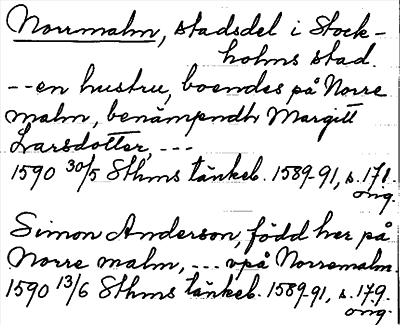 Norrmalm, stadsdel i Stock-
holms stad.
--en hustru, boendes på Norre
malm, benämpndh Margitt
Larsdotter, ---
1590 30/5 Sthms tänkeb. 1589-91, s. 171.
orig.
Simon Anderson, född her på
Norre malm, ... vpå Norremalm.
1590 13/6 Sthms tänkeb. 1589-91, s. 179.
orig.